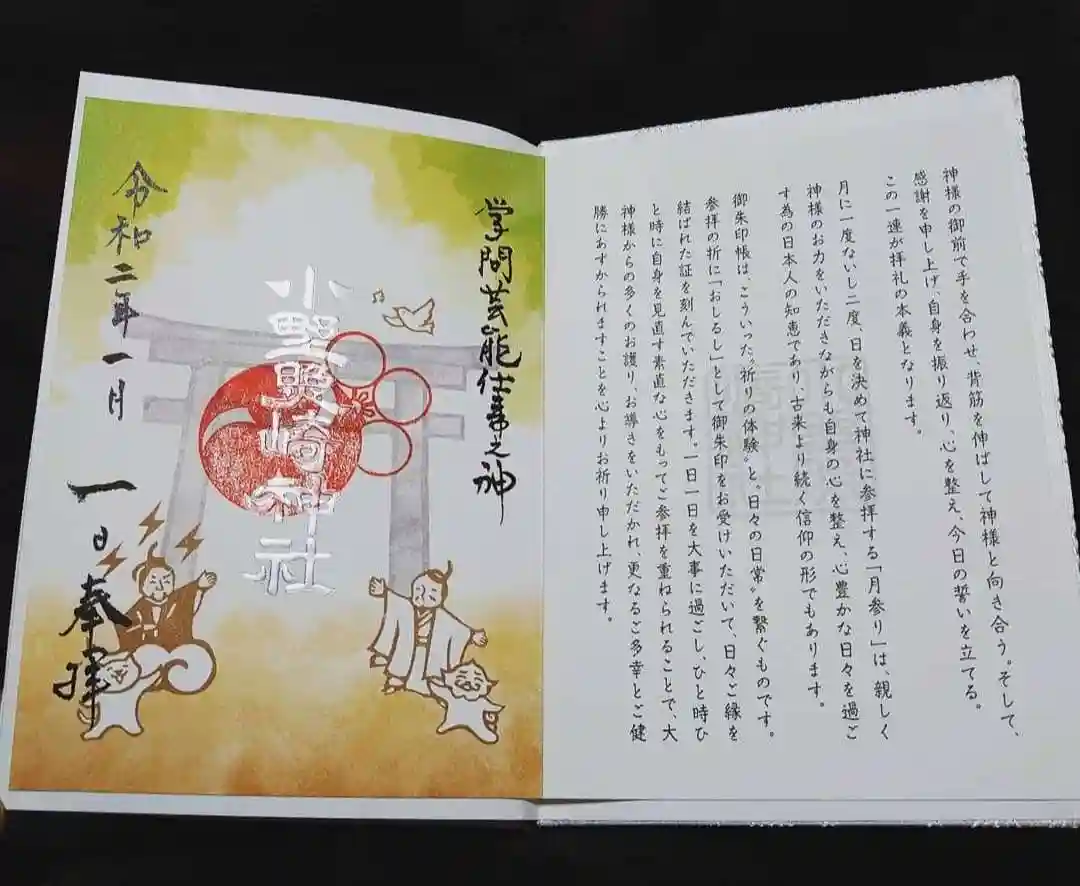 神様の御前で手を合わせ、背筋を伸ばして神様と向き合う。そして、
感謝を申し上げ、自身を振り返り、心を整え、今日の誓いを立てる。
この一連が拝礼の本義となります。
月に一度ないし二度、日を決めて神社に参拝する「月参り」は、親しく
神様のお力をいただきながらも自身の心を整え、心豊かな日々を過ご
す為の日本人の知恵であり、古来より続く信仰の形でもあります。
御朱印帳は、こういった〝祈りの体験〟と〝日々の日常〟を繋ぐものです。
参拝の折に「おしるし」として御朱印をお受けいただいて、日々ご縁を
結ばれた証を刻んでいただきます。一日一日を大事に過ごし、ひと時ひ
と時に自身を見直す素直な心をもってご参拝を重ねられることで、大
神様からの多くのお護り、お導きをいただかれ、更なるご多幸とご健
勝にあずかられますことを心よりお祈り申し上げます。
学問芸能仕事之神
小野照崎神社
令和二年一月一日奉拝